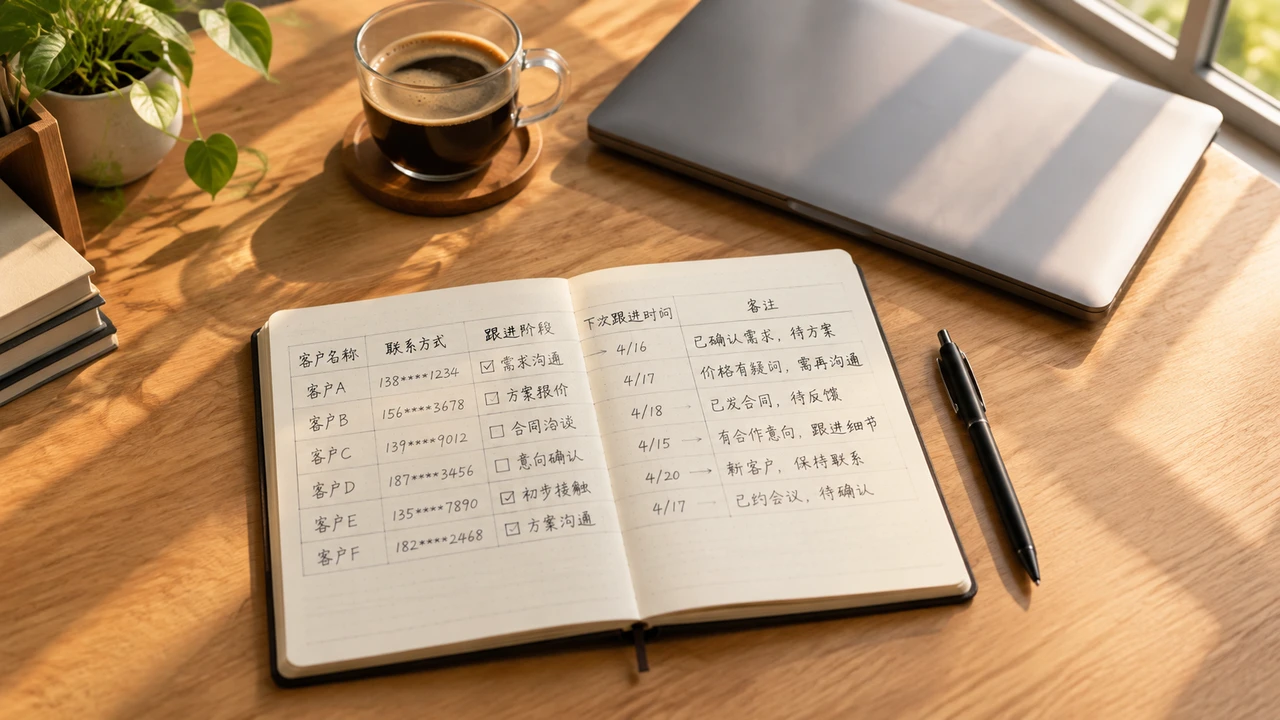 客户名称 联系方式 跟进阶段 下次跟进时间 客注
客户A 138****1234 ☑ 需求沟通 → 4/16 已确认需求，待方案
客户B 156****3678 ☐ 方案报价 4/17 价格有疑问，需再沟通
客户C 139****9012 ☐ 合同洽谈 4/18 → 已发合同，待反馈
客户D 187****3456 ☐ 意向确认 4/15 → 有合作意向，跟进细节
客户E 135****7890 ☑ 初步接触 4/20 → 新客户，保持联系
客户F 182****2468 ☑ 方案沟通 4/17 → 已约会议，待确认